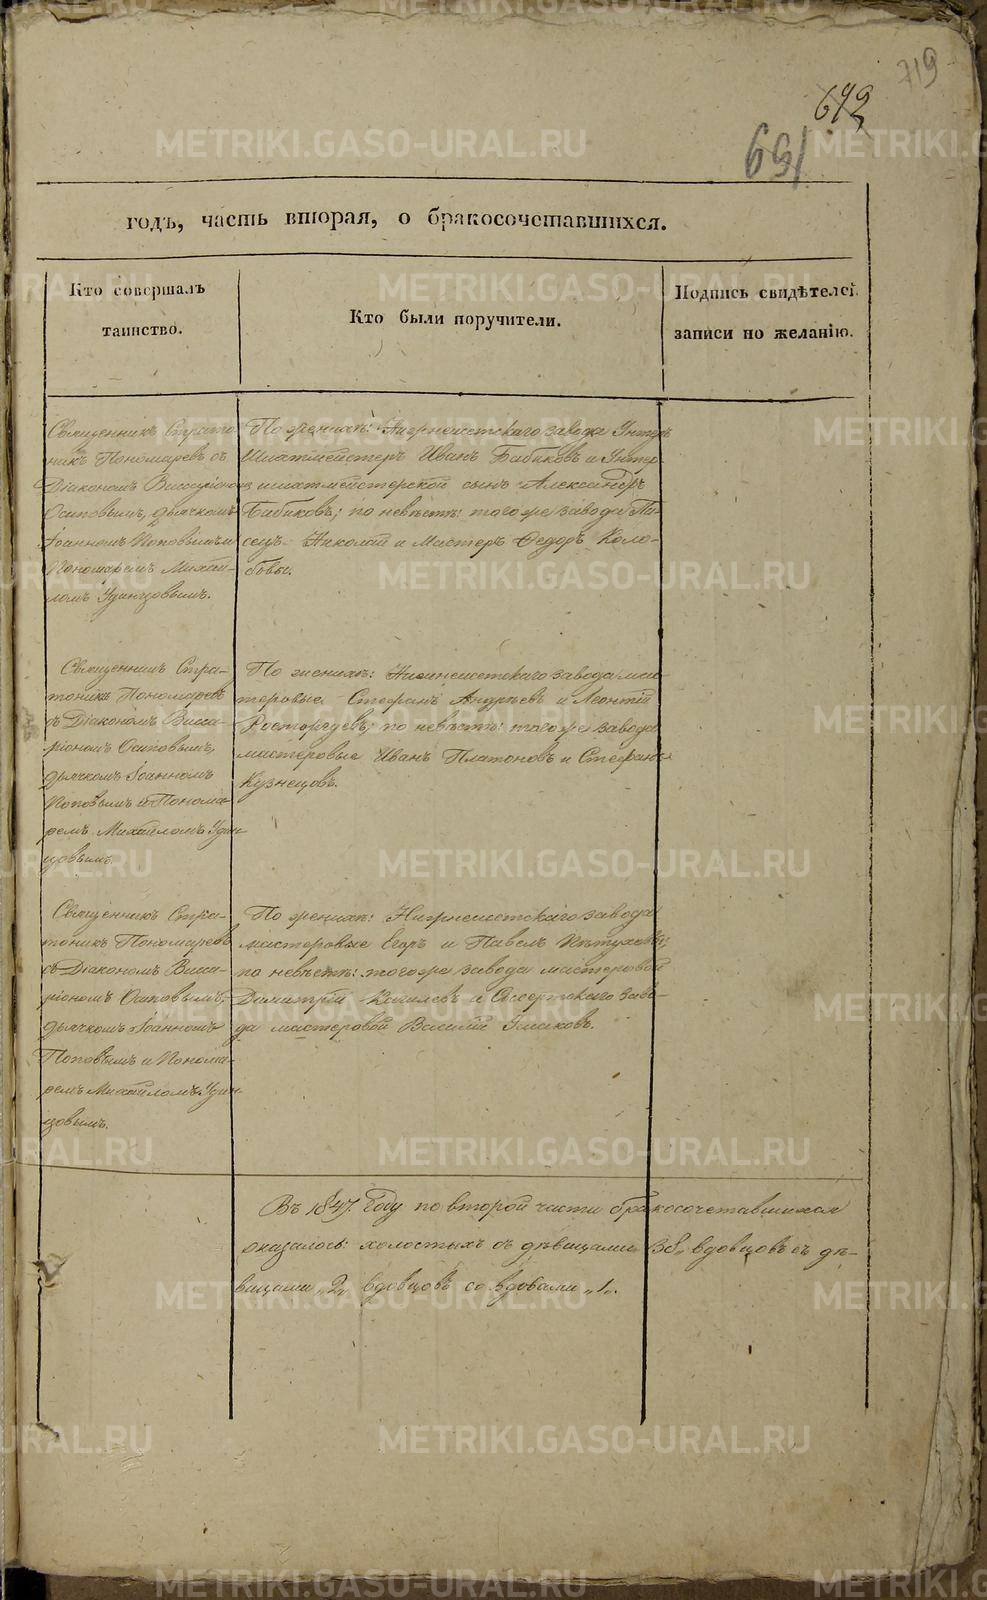 719
642
691
годъ, часть вторая, о бракосочетавшихся.
Кто совершалъ
таинство.
Кто были поручители.
Подпись свидѣтелей
записи по желанію.
Священникъ Страто-
никъ Пономаревъ съ
Діакономъ Виссаріоно
Осиповымъ, дьячкомъ
Іоанномъ Поповымъ и
Пономаремъ Михаи-
ломъ Удинцовымъ.
По женихѣ: Нижнеисетскаго завода Унтеръ
Шихтмейстеръ Иванъ Бабиковъ и Унтер
шихтмейстерской сынъ Александръ
Бабиковъ; по невѣстѣ: тогоже завода Пи-
сецъ Николай и Мастеръ Федоръ Коло-
бовы.
Священникъ Стра-
тоникъ Пономаревъ
съ Діакономъ Висса-
ріономъ Осиповымъ,
дьячкомъ Іоанномъ
Поповымъ и Понома-
ремъ Михайломъ Удин-
цовымъ.
По женихѣ: Нижнеисетскаго завода мас
теровые Стефанъ Андреевъ и Леонтій
Расторгуевъ; по невѣстѣ: тогоже завода
мастеровые Иванъ Платоновъ и Стефанъ
Кузнецовъ.
Священникъ Стра-
тоникъ Пономаревъ
съ Діакономъ Висса-
ріономъ Осиповымъ,
дьячкомъ Іоанномъ
Поповымъ и Понома-
ремъ Михайломъ Удин-
цовымъ.
По женихѣ: Нижнеисетскаго завода
мастеровые Егоръ и Павелъ Пѣтуховы;
по невѣстѣ: тогоже завода мастеровой
Димитрій и Сысертскаго заво-
да мастеровой Василій
Въ 1847. Году по второй части бракосочетавшихся
оказалось: холостыхъ съ дѣвицами „38„ вдовцовъ съ дѣ-
вицами „2„ вдовцовъ со вдовами „1„.
METRIKI.GASO-URAL.RU